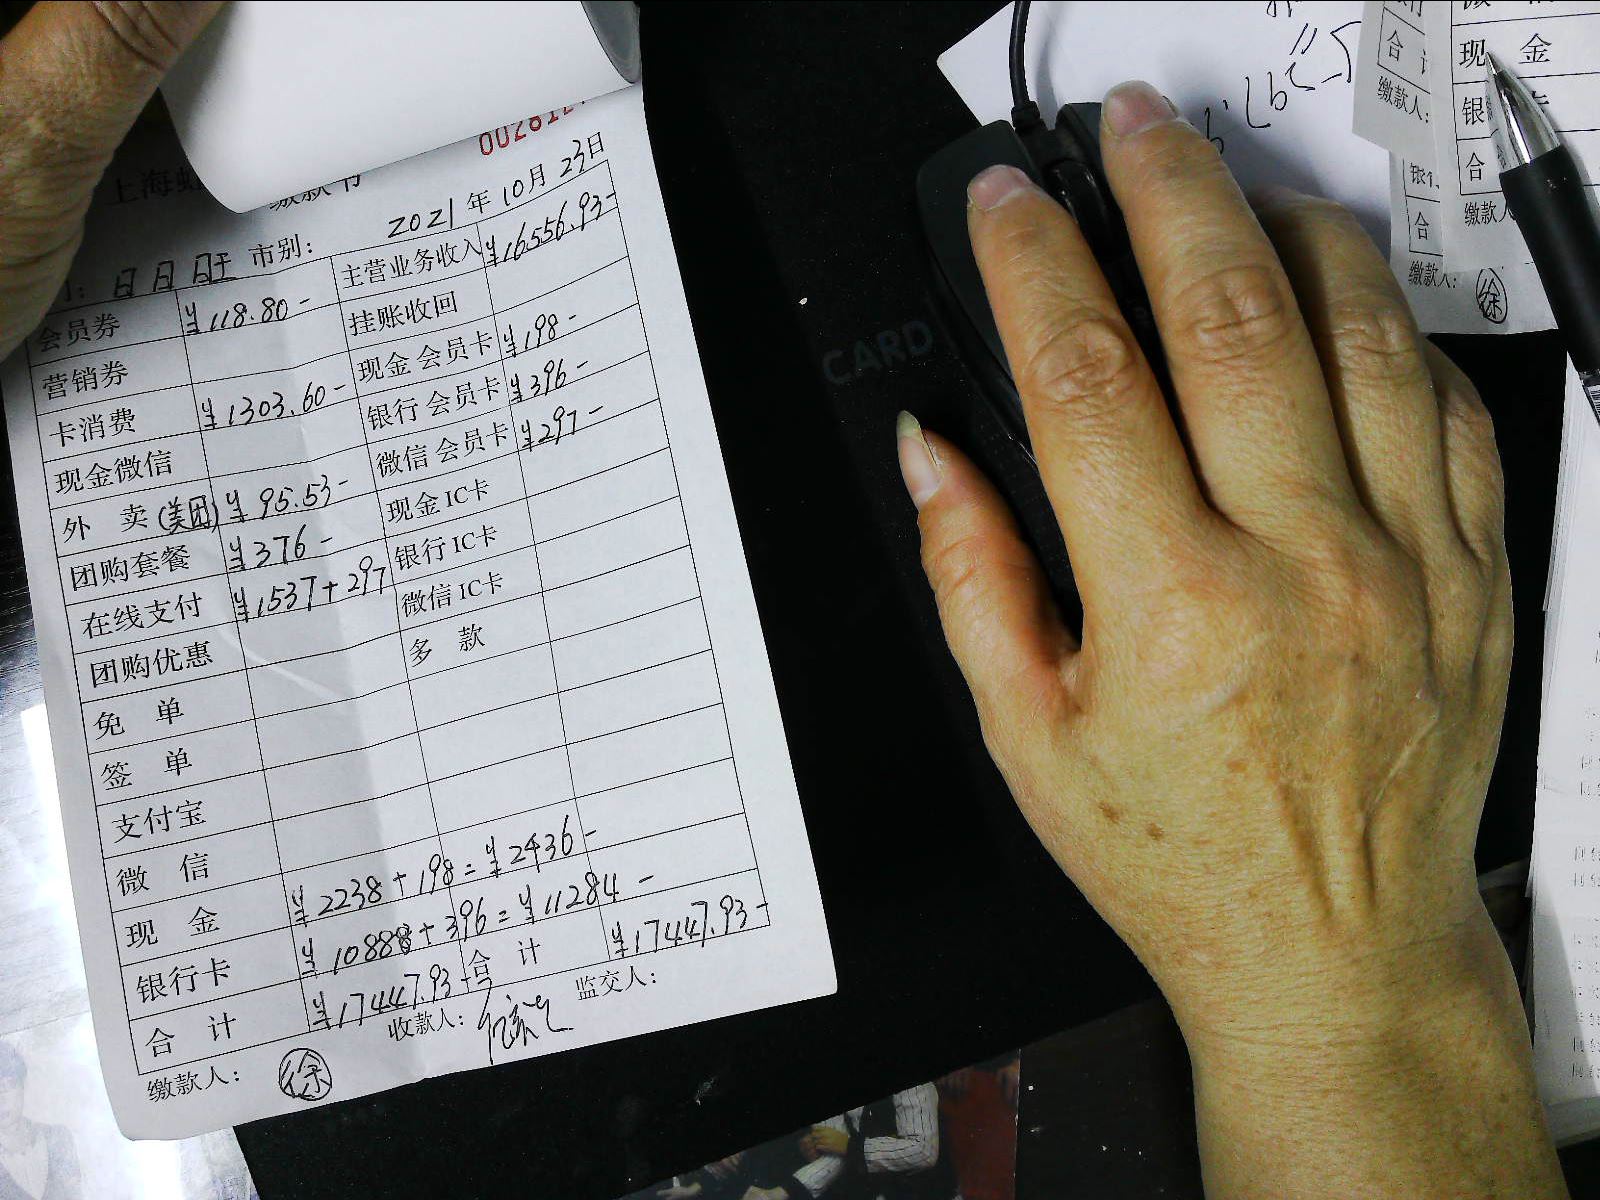 002812
上海
缴款书
2021年10月23日
市别：
会员券 ¥118.80- 主营业务收入 ¥16556.93-
营销券 挂账收回
卡消费 ¥1303.60- 现金 会员卡 ¥198-
现金微信 银行 会员卡 ¥396-
外 卖(美团) ¥95.53- 微信 会员卡 ¥297-
团购套餐 ¥376- 现金 IC卡
在线支付 ¥1537+297 银行 IC卡
团购优惠 微信 IC卡
免 单 多 款
签 单
支付宝
微 信
现 金 ¥2238+198=¥2436-
银行卡 ¥10888+396=¥11284-
合 计 ¥17447.93- 合 计 ¥17447.93-
缴款人： 徐 收款人： 监交人：
CARD
合 计
缴款人：
合
缴款人： 徐
现 金
银 卡
合
缴款人